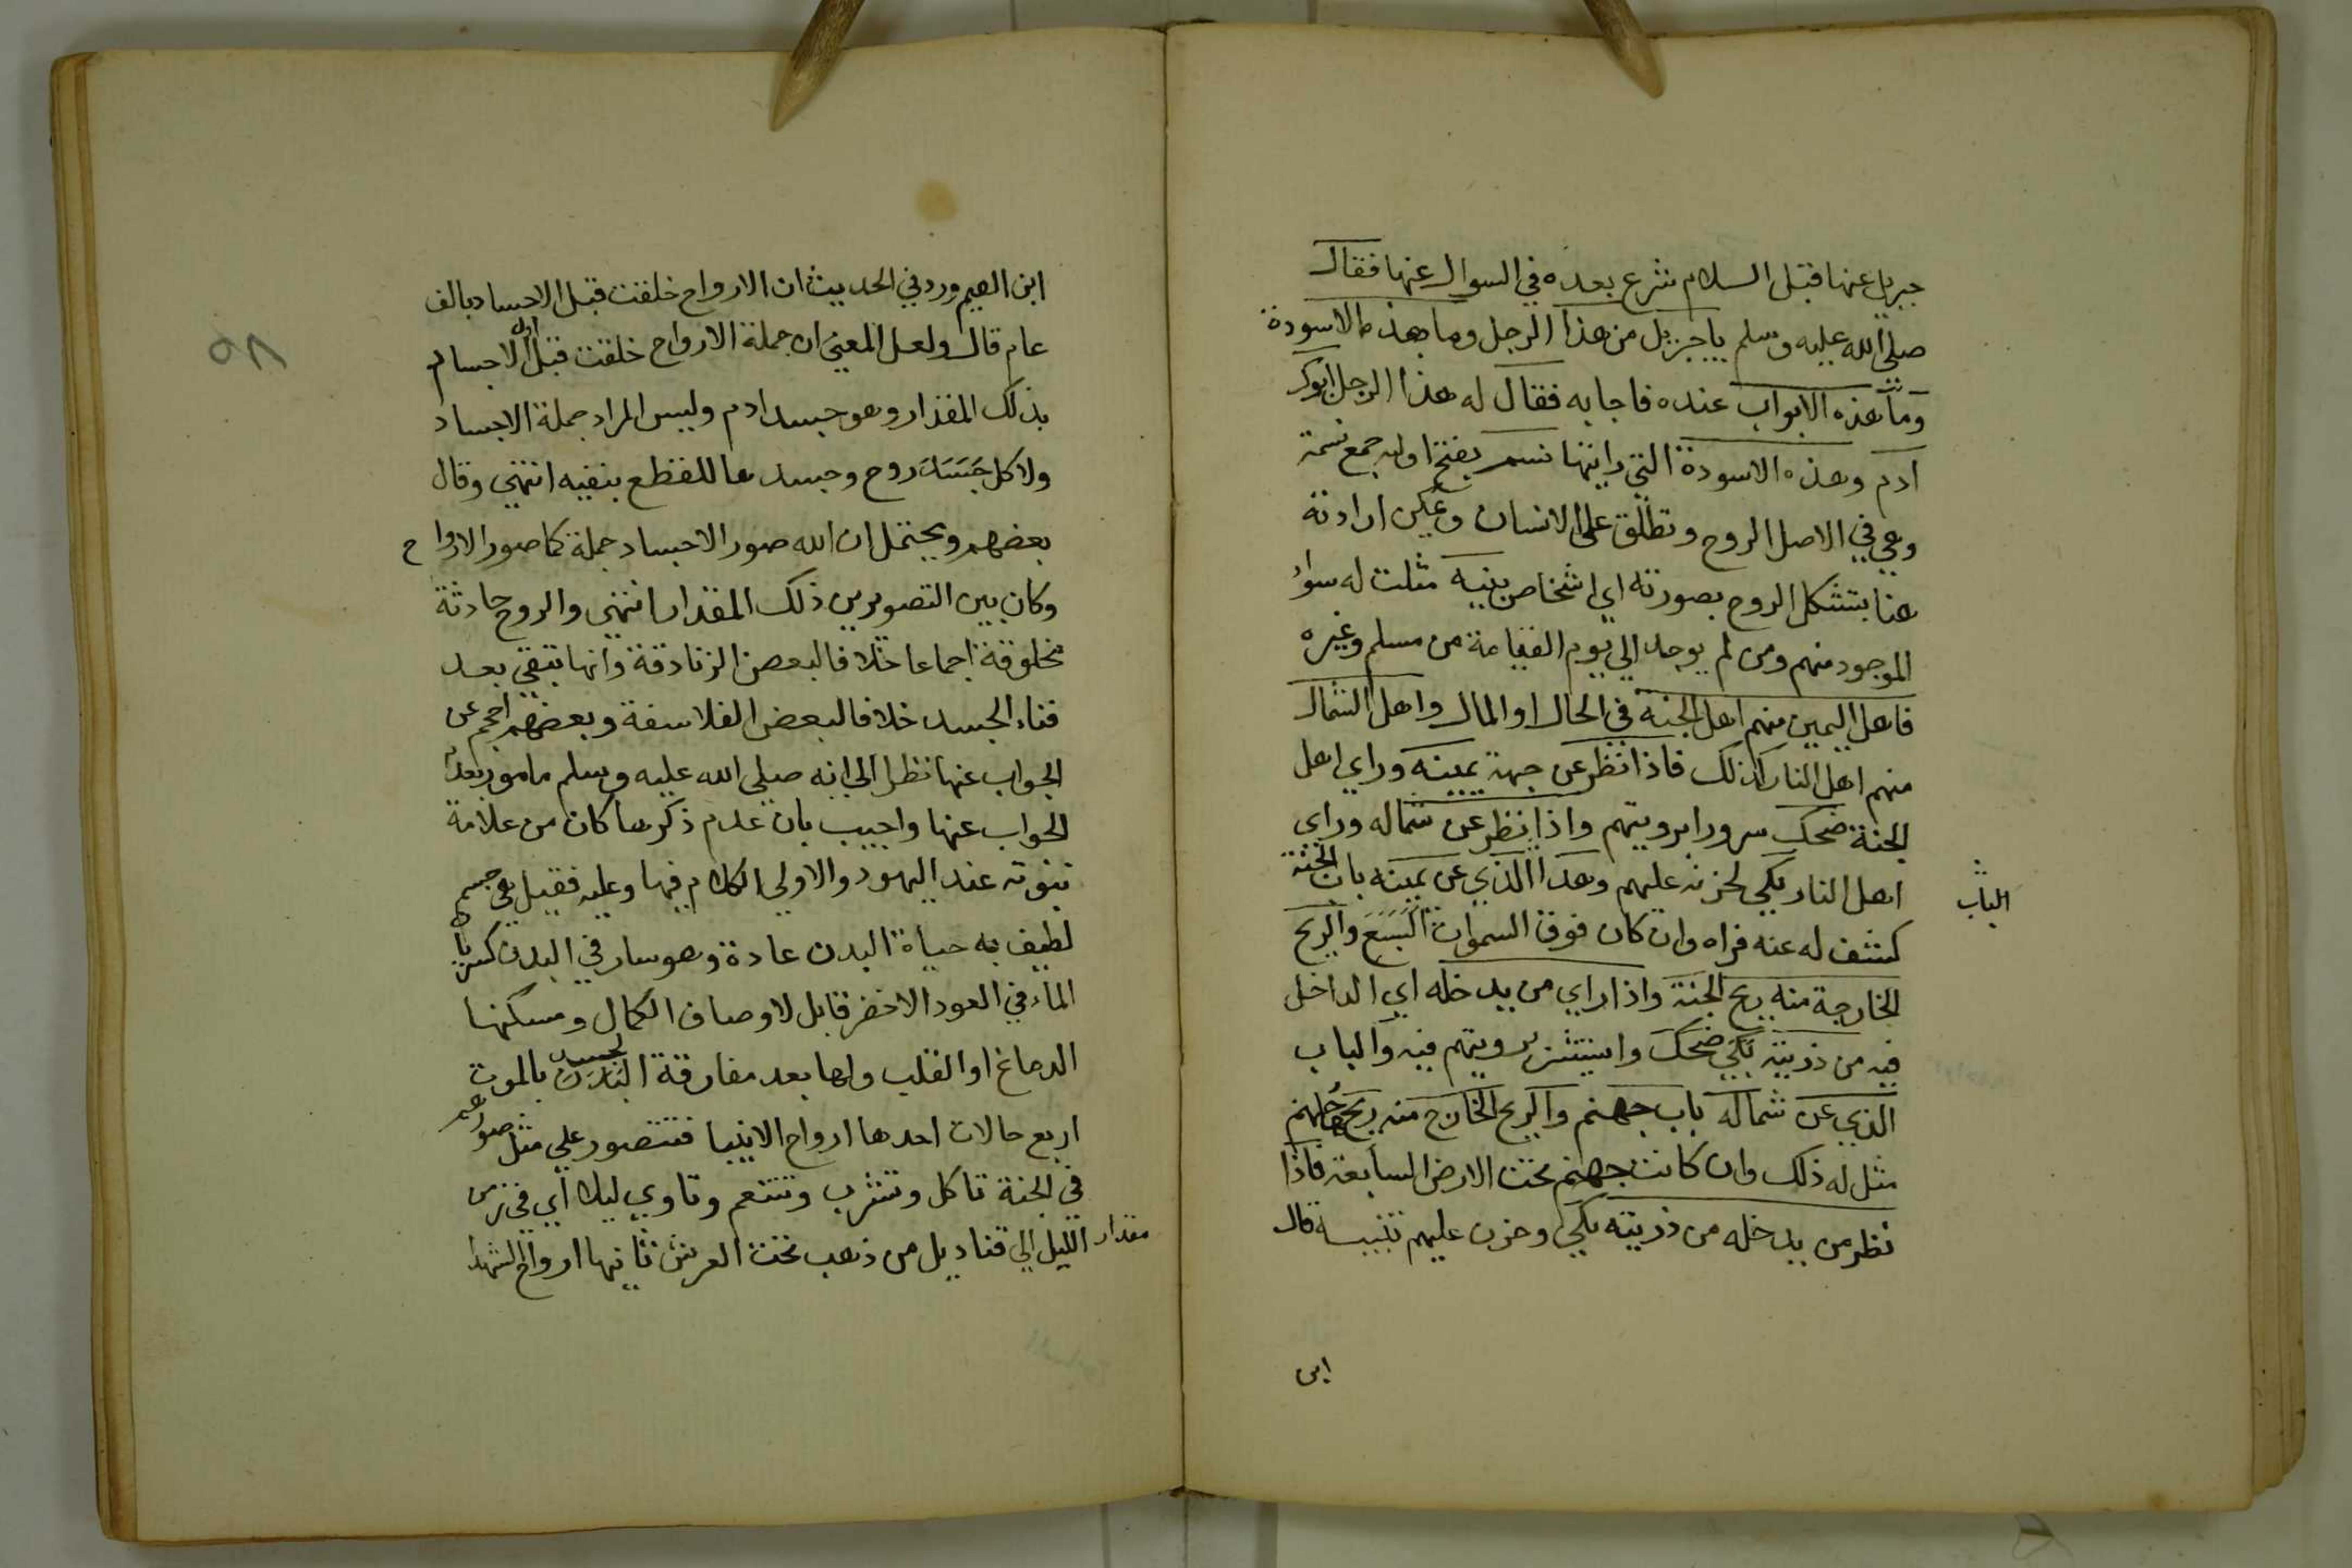 جبريل عنها قبل السلام شرع بعده في السوال عنها فقال
صلى الله عليه وسلم يا جبريل من هذا الرجل وما هذه الاسودة
وما هذه الابواب عنده فاجابه فقال له هذا الرجل ابوك
ادم وهذه الاسودة التي رايتها نسم بفتح اوله جمع نسمة
وهي في الاصل الروح وتطلق على الانسان ويمكن ارادته
هنا بتشكل الروح بصورته اي اشخاص بنيه مثلت له سواء
الموجود منهم ومن لم يوجد الي يوم القيامة من مسلم وغيره
فاهل اليمين منهم اهل الجنة في الحال او المال واهل الشمال
منهم اهل النار كذلك فاذا نظر عن جهة يمينه وراي اهل
الجنة ضحك سرورا برويتهم واذا نظر عن شماله وراي
اهل النار بكي لحزنه عليهم وهذا الذي عن يمينه باب الجنة
الباب
كشف له عنه فراه وان كان فوق السموات السبع والريح
الخارجة منه ريح الجنة واذا راي من يدخله اي الداخل
فيه من ذريته بكي ضحك واستبشر برويتهم فيه والباب
الذي عن شماله باب جهنم والريح الخارج منه ريح جهنم
مثل له ذلك وان كانت جهنم تحت الارض السابعة فاذا
نظر من يدخله من ذريته بكي وحزن عليهم تنبيه قال
ابن
٥٨
ابن القيم ورد في الحديث ان الارواح خلقت قبل الاجساد بالف
عام قال ولعل المعني ان جملة الارواح خلقت قبل اول الاجسام
بذلك المقدار وهو جسد ادم وليس المراد جملة الاجساد
ولا كل جسد روح وجسدها للقطع بنفيه انتهي وقال
بعضهم ويحتمل ان الله صور الاجساد جملة كما صور الارواح
وكان بين التصويرين ذلك المقدار انتهي والروح حادثة
مخلوقة اجماعا خلافا لبعض الزنادقة وانها تبقي بعد
فناء الجسد خلافا لبعض الفلاسفة وبعضهم احجم عن
الجواب عنها نظرا الي انه صلي الله عليه وسلم مامور بعدم
الجواب عنها واجيب بان عدم ذكرها كان من علامة
نبوته عند اليهود والاولي الكلام فيها وعليه فقيل هي جسم
لطيف به حياة البدن عادة وهو سار في البدن كسريان
الماء في العود الاخضر قابل لاوصاف الكمال ومسكنها
الدماغ او القلب ولها بعد مفارقة البدن الجسد بالموت
اربع حالات احدها ارواح الانبيا فتتصور علي مثل صورهم
في الجنة تاكل وتشرب وتتنعم وتاوي ليلا اي في زمن
مقدار الليل الي قناديل من ذهب تحت العرش ثانيها ارواح الشهدا